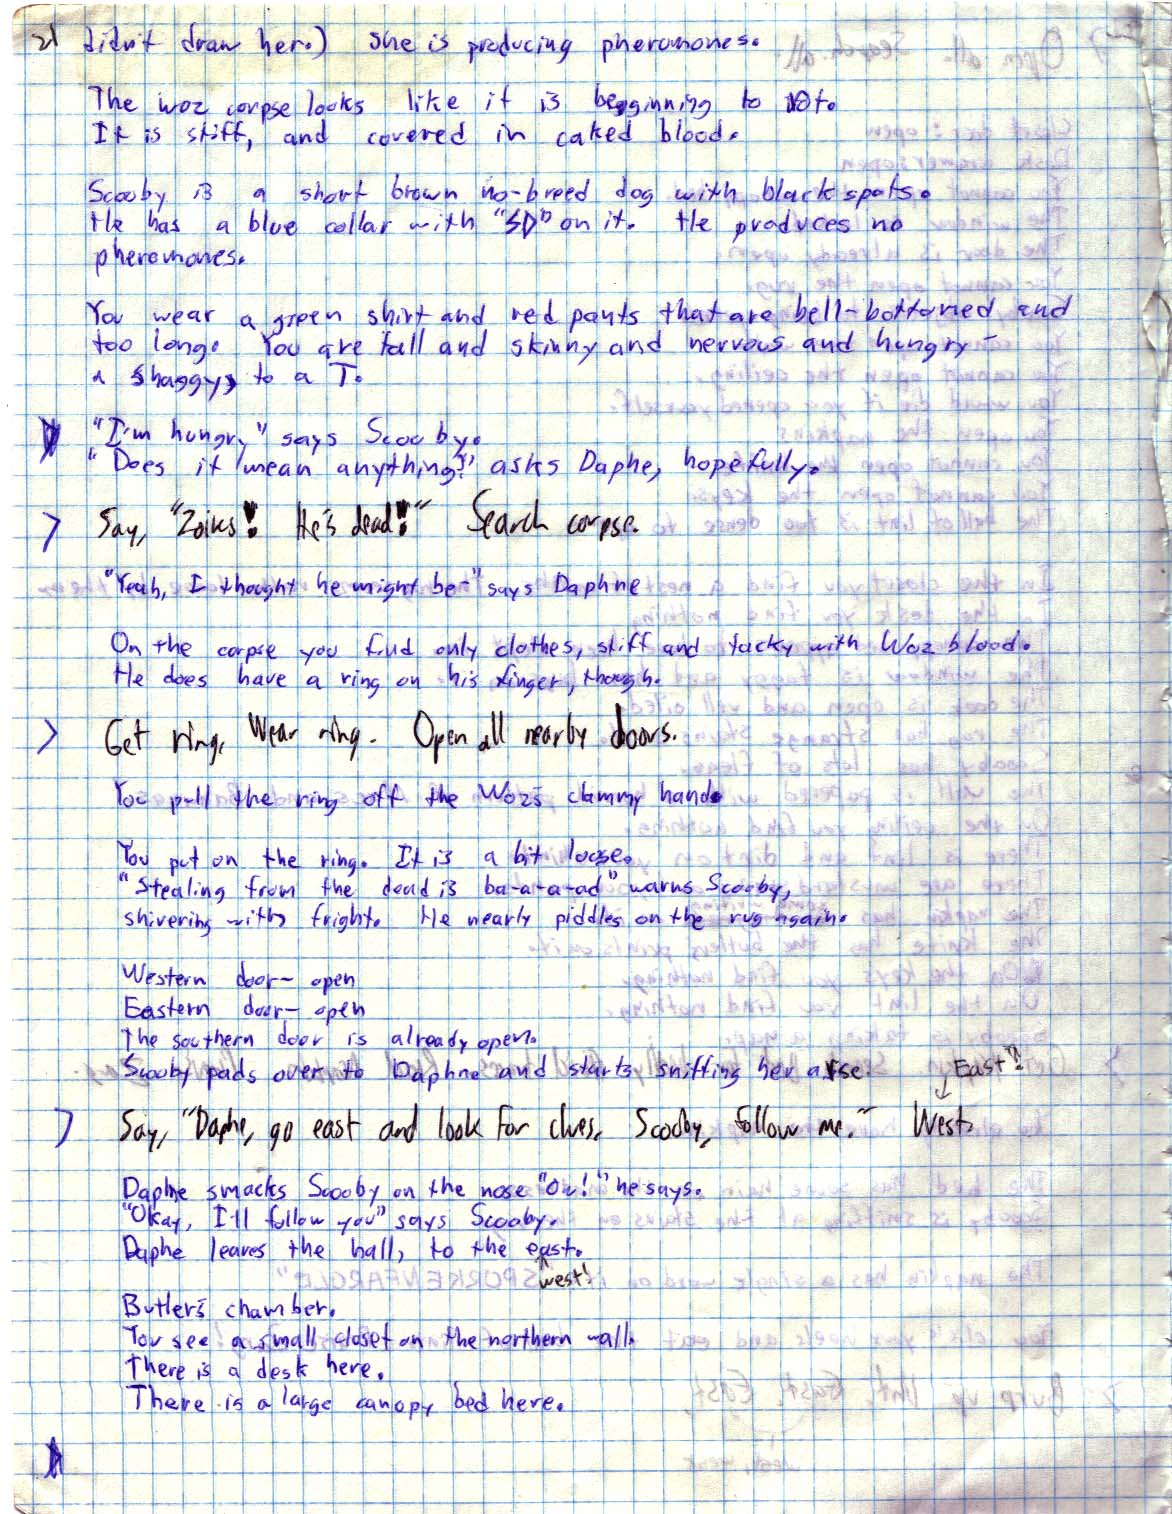 2) didn't draw her.) She is producing pheromones.
The woz corpse looks like it is beginning to rot.
It is stiff, and covered in caked blood.
Scooby is a short brown no-breed dog with black spots.
He has a blue collar with "SD" on it. He produces no
pheromones.
You wear a green shirt and red pants that are bell-bottomed and
too long. You are tall and skinny and nervous and hungry -
a shaggy, to a T.
"I'm hungry" says Scooby.
"Does it mean anything?" asks Daphe, hopefully.
> Say, "Zoiks! He's dead!" Search corpse.
"Yeah, I thought he might be-" says Daphne
On the corpse you find only clothes, stiff and tacky with Woz blood.
He does have a ring on his finger, though.
> Get ring, Wear ring. Open all nearby doors.
You pull the ring off the Woz's clammy hand.
You put on the ring. It is a bit loose.
"Stealing from the dead is ba-a-a-ad" warns Scooby,
shivering with fright. He nearly piddles on the rug again.
Western door - open
Eastern door - open
The southern door is already open.
Scooby pads over to Daphne and starts sniffing her arse.
East?
> Say, "Daphe, go east and look for clues. Scooby, follow me." West.
Daphne smacks Scooby on the nose "Ow!" he says.
"Okay, I'll follow you" says Scooby.
Daphe leaves the hall, to the east.
west!
Butler's chamber.
You see a small closet on the northern wall.
There is a desk here.
There is a large canopy bed here.